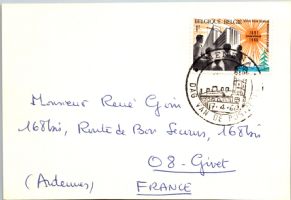 BELGIQUE BELGIË
DAG VAN DE
Monsieur René
168bis, Route de Bon Secours, 168bis
08 - Givet
(Ardennes) FRANCE